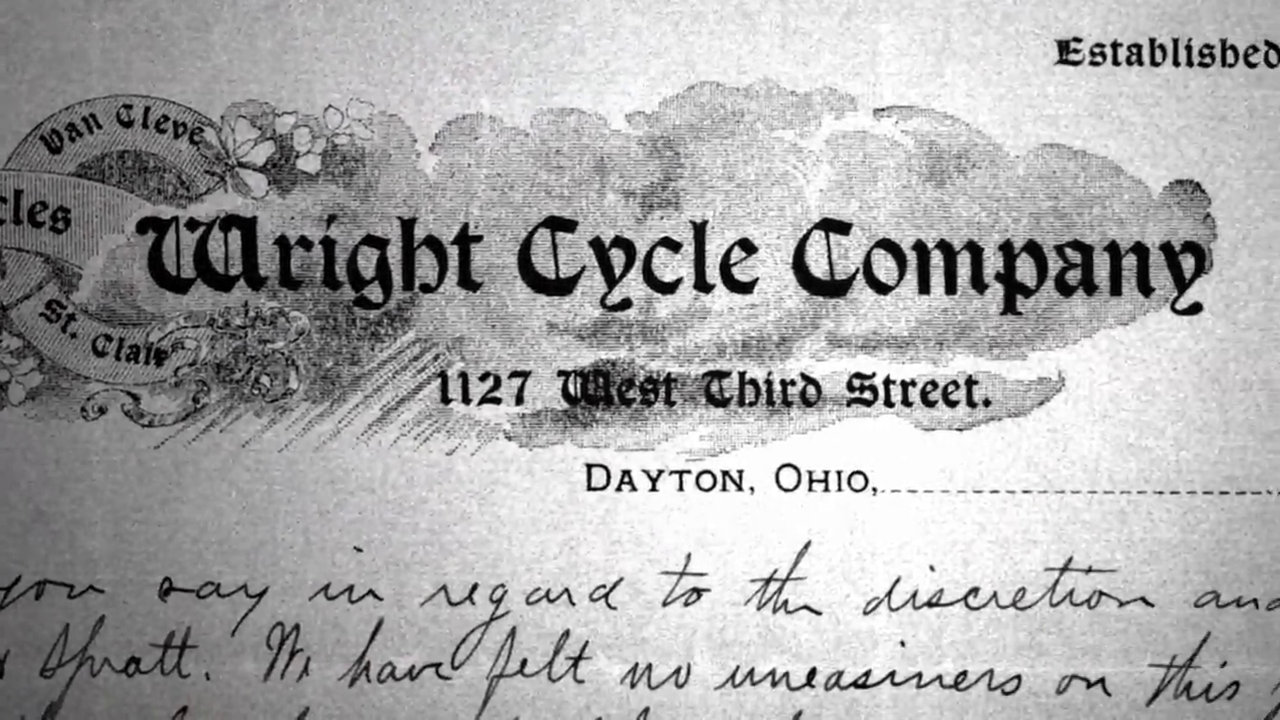 Established
Van Cleve
cles
Wright Cycle Company
St. Clair
1127 West Third Street.
DAYTON, OHIO,
you say in regard to the discretion and
Spratt. We have felt no uneasiness on this